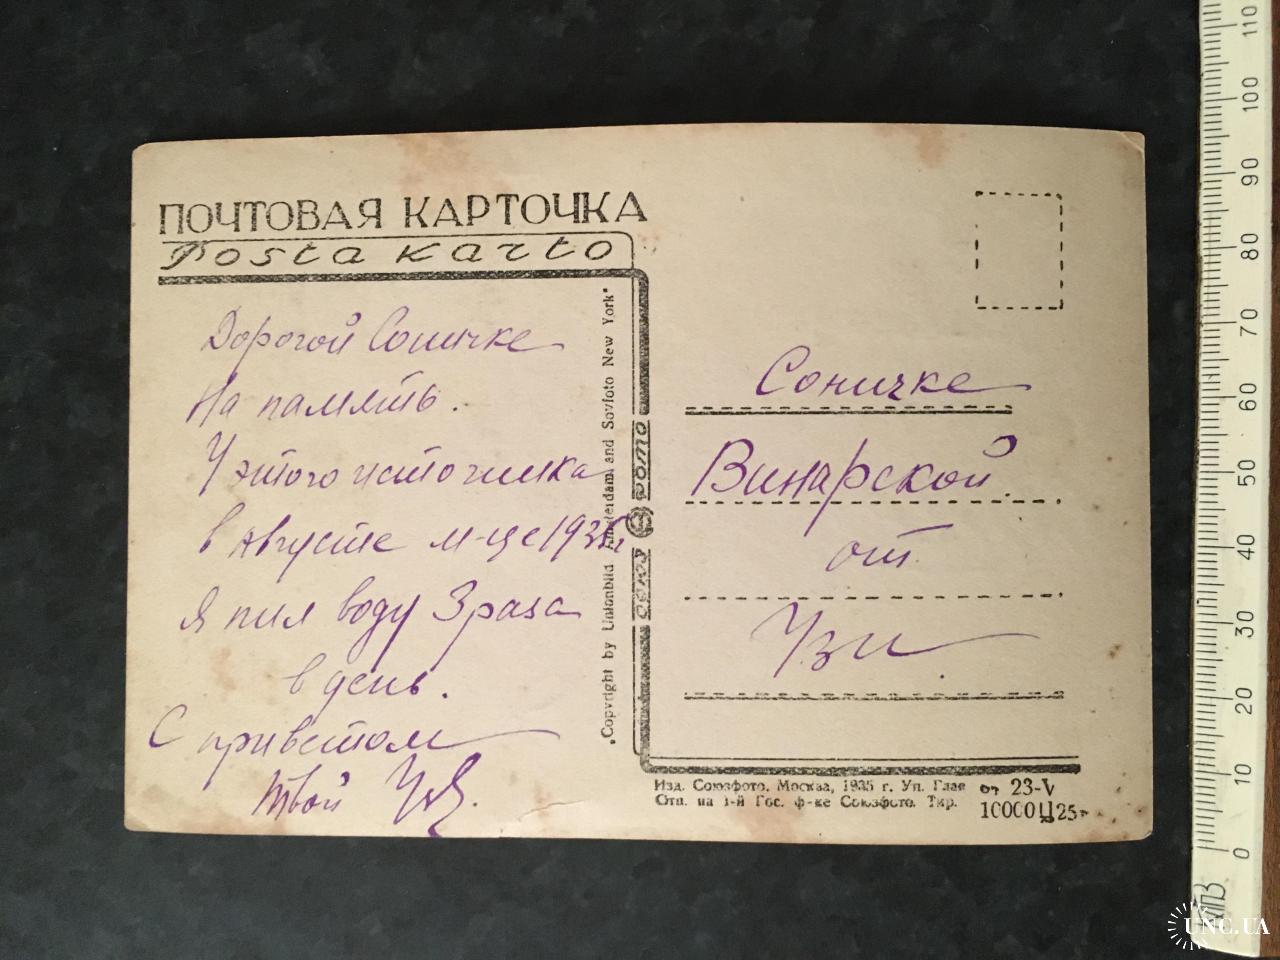 ПОЧТОВАЯ КАРТОЧКА
Posta karto
Дорогой Соничке
На память.
У этого источника
в августе м-це 1935г
Я пил воду 3 раза
в день.
С приветом
твой
"Copyright by Unionbild Amsterdam and Sovfoto New York"
СОЮЗ ФОТО
Соничке
Винарской
от
Узи
Изд. Союзфото. Москва, 1935 г. Уп. Глав
Отп. на 1-й Гос. ф-ке Союзфото. Тир.
от 23-V
10000 Ц 25
110
100
90
80
70
60
50
40
30
20
10
0
UNC.UA